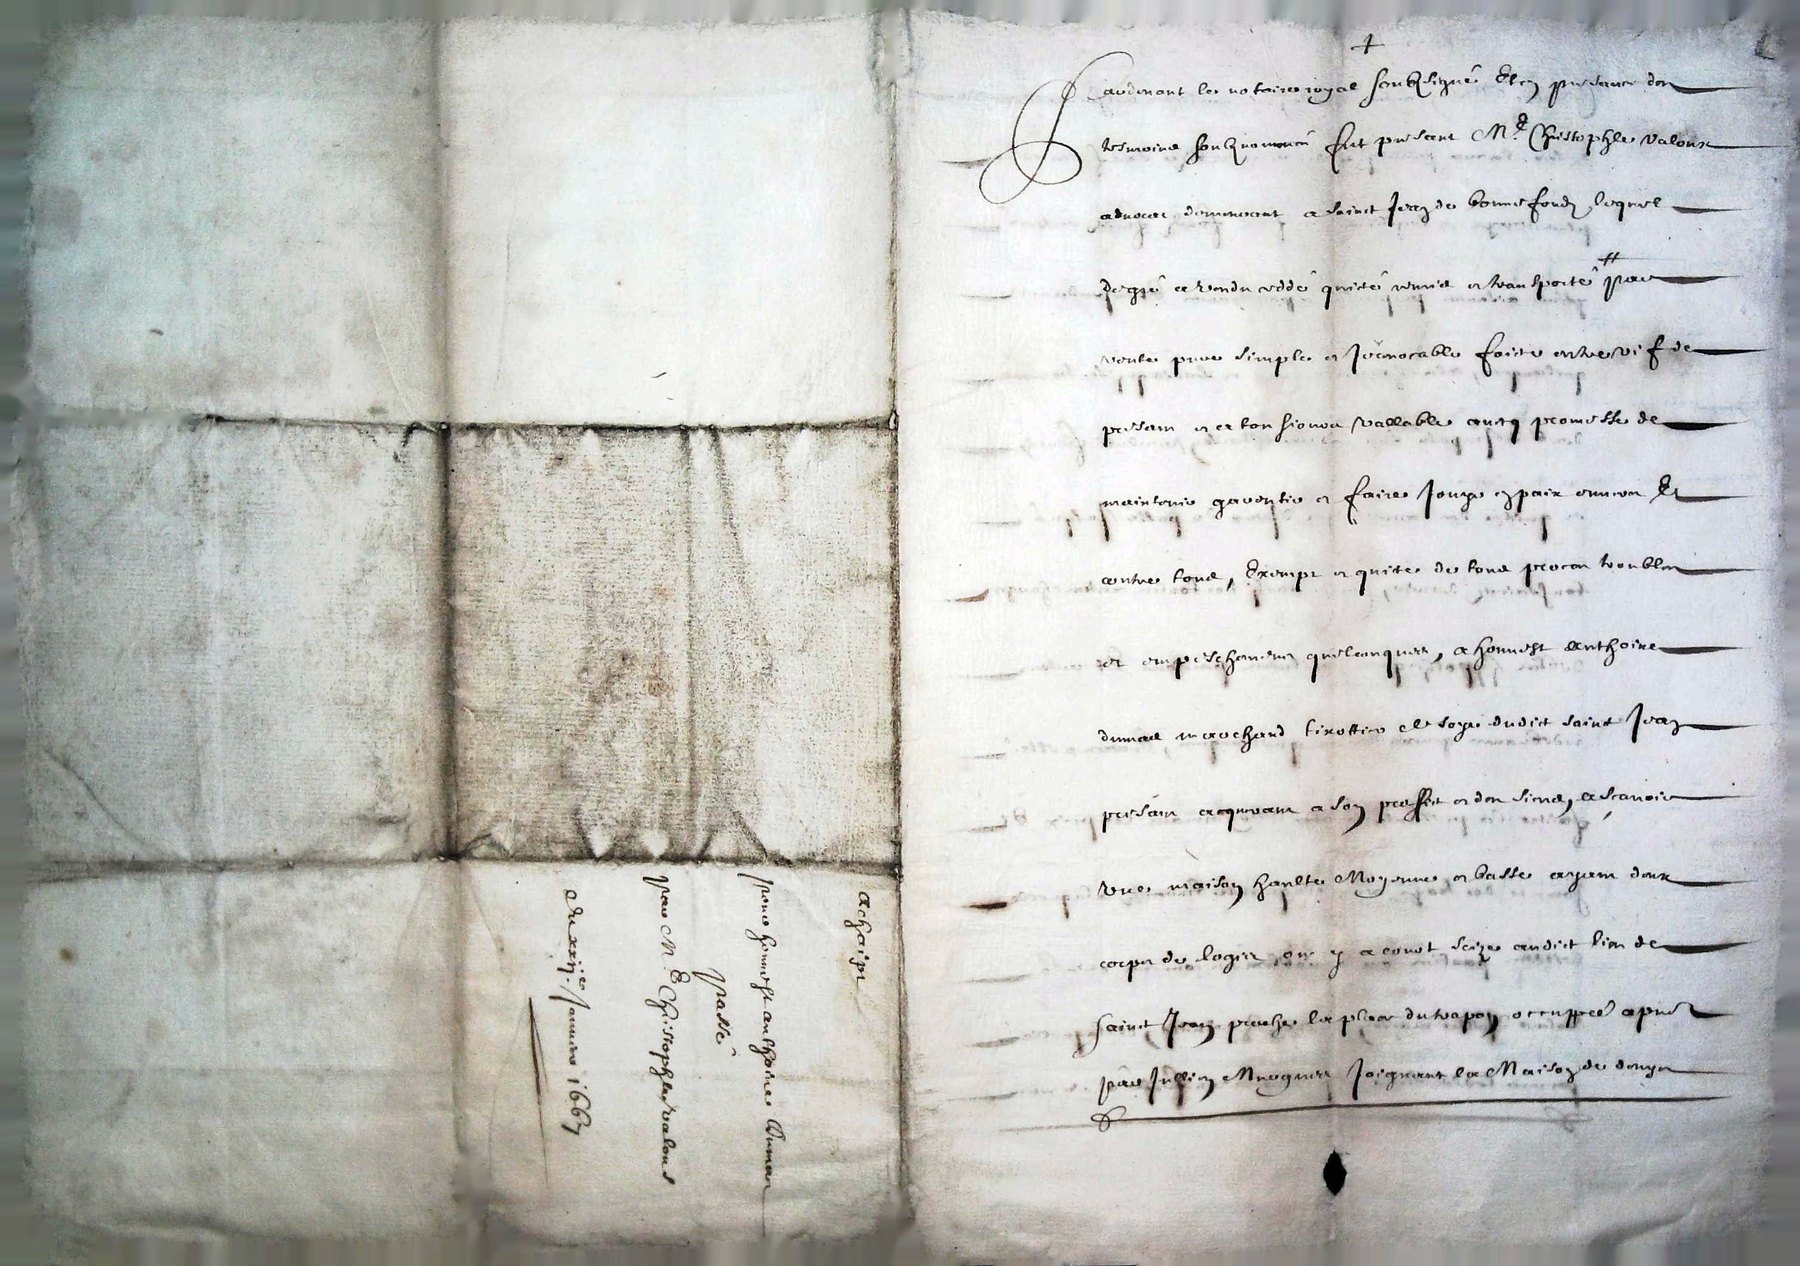 +
Pardevant le notaire royal soubsigné Et en presance des
tesmoins soubz nommés fut presant Me Christophle Valous
advocat demeurant a saint Jean de bonnefondz lequel
de gré a vendu cedé quicté remis et transporté par
vente pure simple et Jrrevocable faicte entre vif de
presant et a tousiours vallable avecq promesse de
maintenir garentir et faire Jouyr en paix envers Et
contre tous, Exempt et quicte de tous proces troubles
et empeschemens quelconques, a honnest Anthoine
dumas marchand de soye dudict saint Jean
presant acquerant a son proffict et des siens, ascavoir
Une maison haulte Moyenne et basse ayant deux
corps de logis audict lieu de
saint Jean proche la place occuppée apresent
par Jullien Joignant la Maison de
Achaipt
pour honnest anthoine Dumas
passé
par Me Christophle valous
Du Janvier 1667